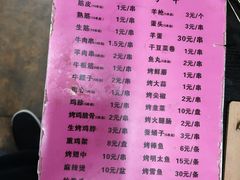 筋皮 1元/串
熟筋 1元/串
生筋 1元/串
牛肉串 1.5元/串
羊肉串 2元/串
牛板筋 2元/串
牛鞭子 2元/串
鸡心 1元/串
鸡胗 2元/串
烤鸡翅骨 2元/串
生烤鸡脖 3元/串
熏鸡架 8元/个
烤翅中 10元/串
麻辣烫 10元/盆
羊枪 3元/个
蛋头 3元/串
羊蛋 30元/串
干豆菜卷 1元/串
鱼丸 1元/串
烤鲜蘑 1元/串
烤大蒜 1元/串
烤尖椒 2元/串
烤韭菜 2元/串
烤火腿肠 2元/串
蚕蛹子 2元/串
烤面包片 6元/串
烤明太鱼 15元/条
烤雪鱼 30元/条